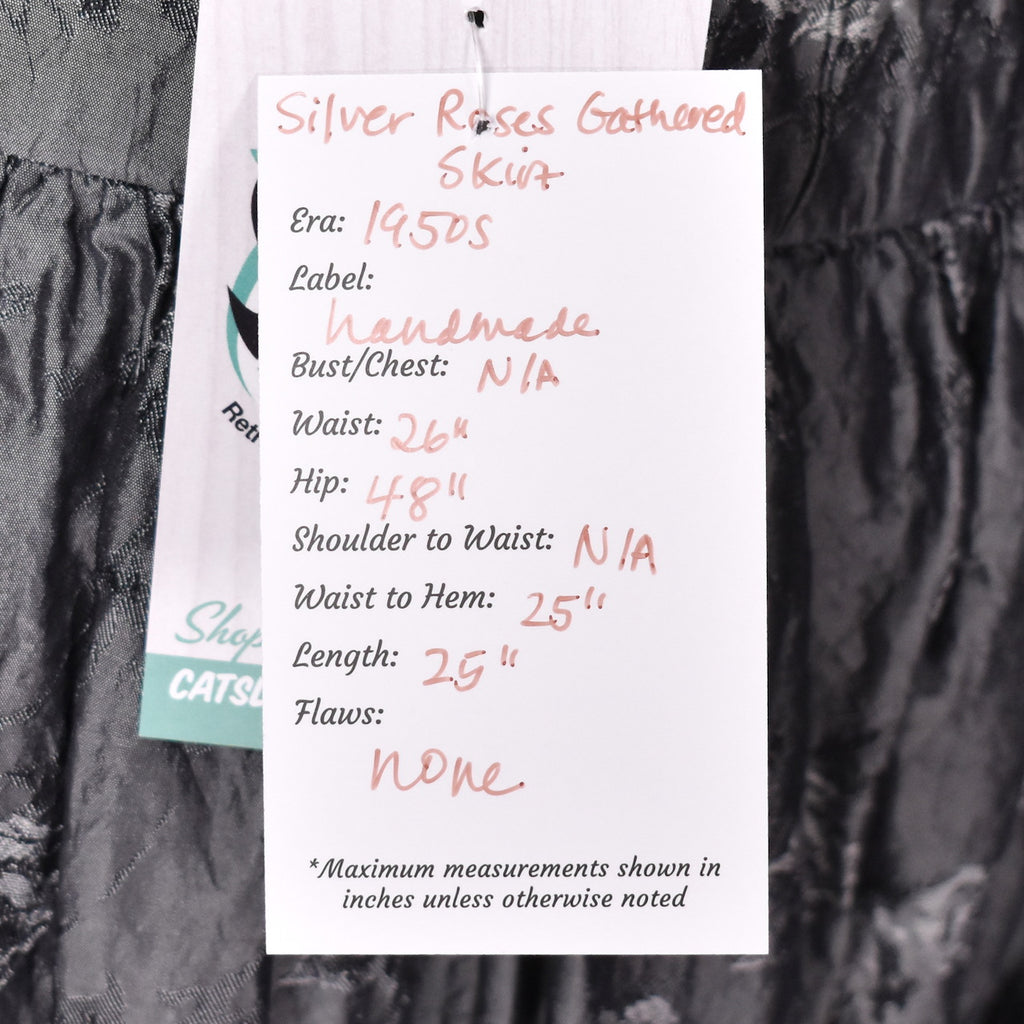 Silver Roses Gathered
Skirt
Era: 1950s
Label:
handmade
Bust/Chest: N/A
Waist: 26"
Hip: 48"
Shoulder to Waist: N/A
Waist to Hem: 25"
Length: 25"
Flaws:
none
*Maximum measurements shown in
inches unless otherwise noted
Shop